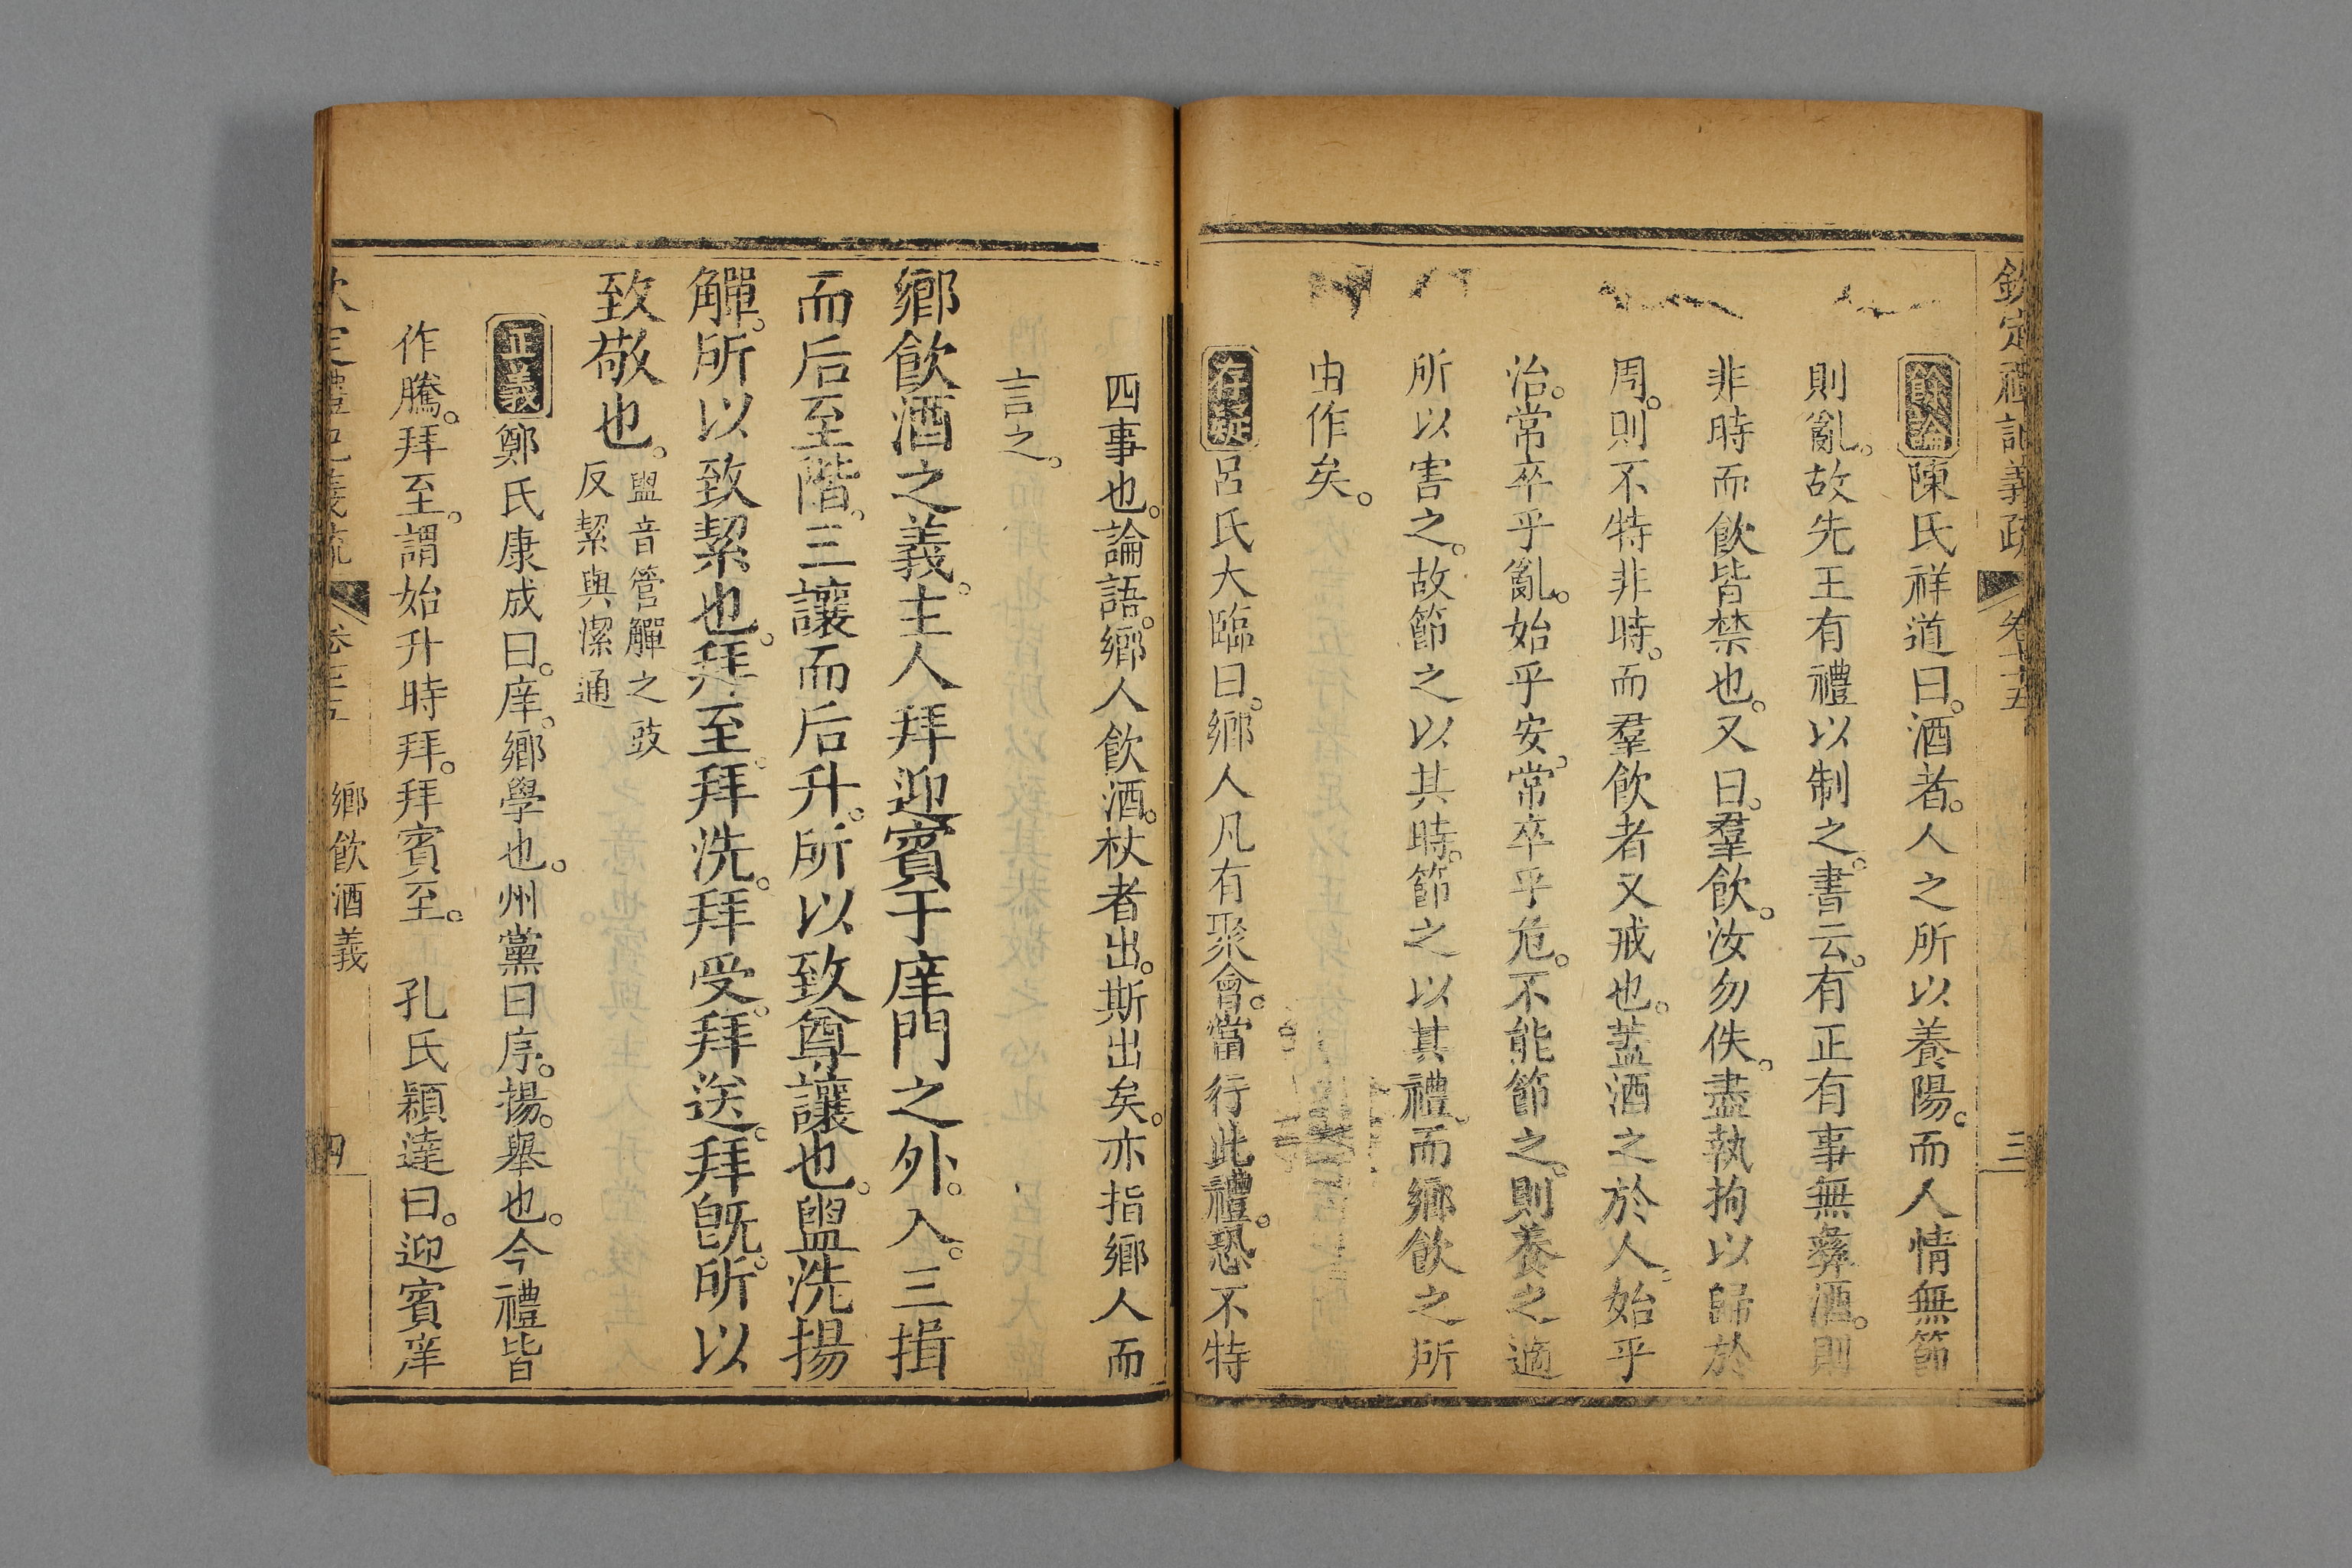 欽定禮記義疏
三
餘論陳氏祥道曰。酒者。人之所以養陽。而人情無節
則亂。故先王有禮以制之。書云。有正有事無彝酒。則
非時而飲皆禁也。又曰。羣飲。汝勿佚。盡執拘以歸於
周。則不特非時。而羣飲者又戒也。蓋酒之於人。始乎
治。常卒乎亂。始乎安。常卒乎危。不能節之。則養之適
所以害之。故節之以其時。節之以其禮。而鄉飲之所
由作矣。
存疑呂氏大臨曰。鄉人凡有聚會。當行此禮。恐不特
四事也。論語。鄉人飲酒。杖者出。斯出矣。亦指鄉人而
言之。
鄉飲酒之義。主人拜迎賓于庠門之外。入。三揖
而后至階。三讓而后升。所以致尊讓也。盥洗揚
觶。所以致絜也。拜至。拜洗。拜受。拜送。拜旣。所以
致敬也。
盥音管觶之豉
反絜與潔通
正義鄭氏康成曰。庠。鄉學也。州黨曰序。揚。舉也。今禮皆
作騰。拜至。謂始升時拜。拜賓至。 孔氏穎達曰。迎賓庠
鄉飲酒義
四